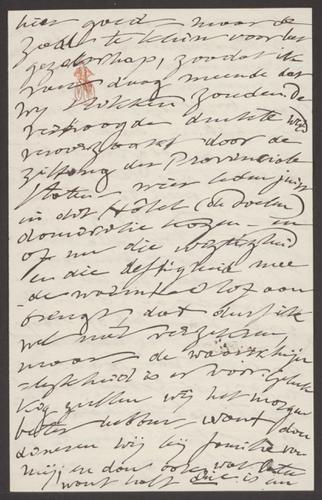 hier goed maar de
zaal te klein voor het
gezelschap, zoodat ik
van daag meende dat
wij stikken zouden. De
verhoogde drukte werd
veroorzaakt door de
zitting der Provinciale
Staten, wier leden juist
in dit Hôtel (de Doelen)
domicilie kozen — en
of nu die bezigheid
en die deftigheid mee
de warmte
brengt, dat durf ik
wel niet verzekeren,
maar de waarschijn
-lijkheid is er voor. Geluk
kig zullen wij het morgen
beter hebben, want dan
dineren wij bij familie van
mij, en dan ook wat later
want half is